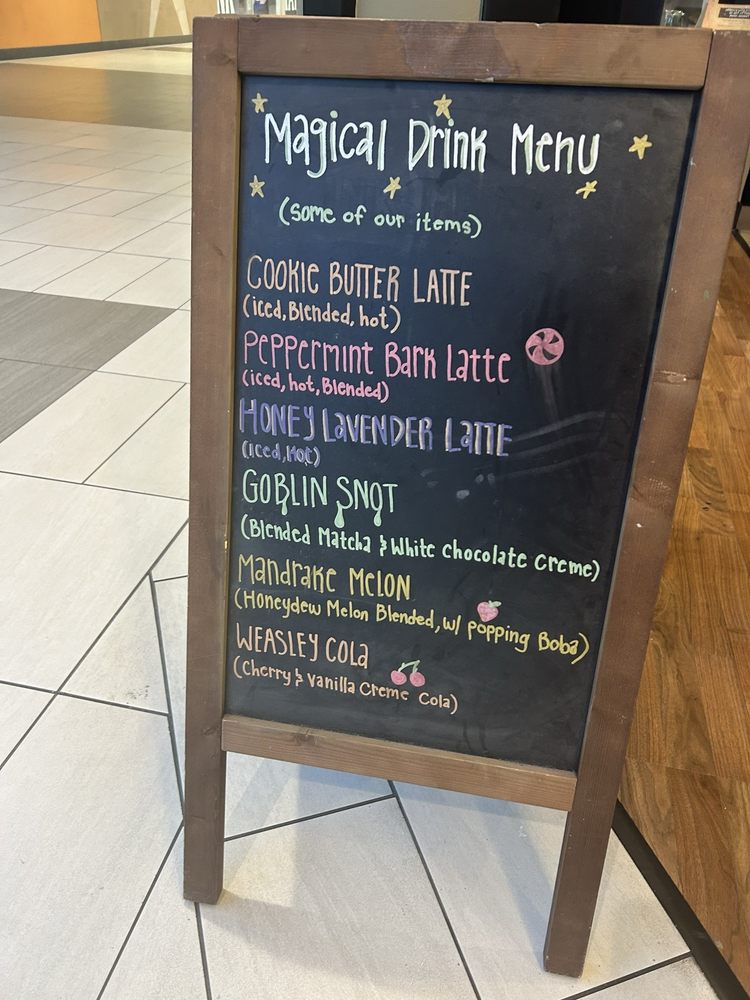 Magical Drink Menu
(some of our items)
COOKIE BUTTER LATTE
(iced, Blended, hot)
Peppermint Bark Latte
(iced, hot, Blended)
HONEY LAVENDER LATTE
(iced, Hot)
GOBLIN SNOT
(Blended Matcha & White Chocolate Creme)
Mandrake MELON
(Honeydew Melon Blended, w/ popping Boba)
WEASLEY COLA
(Cherry & Vanilla Creme Cola)